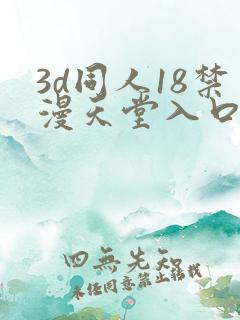 3d同人18禁
漫天堂入口
四無先知
未经同意禁止转载